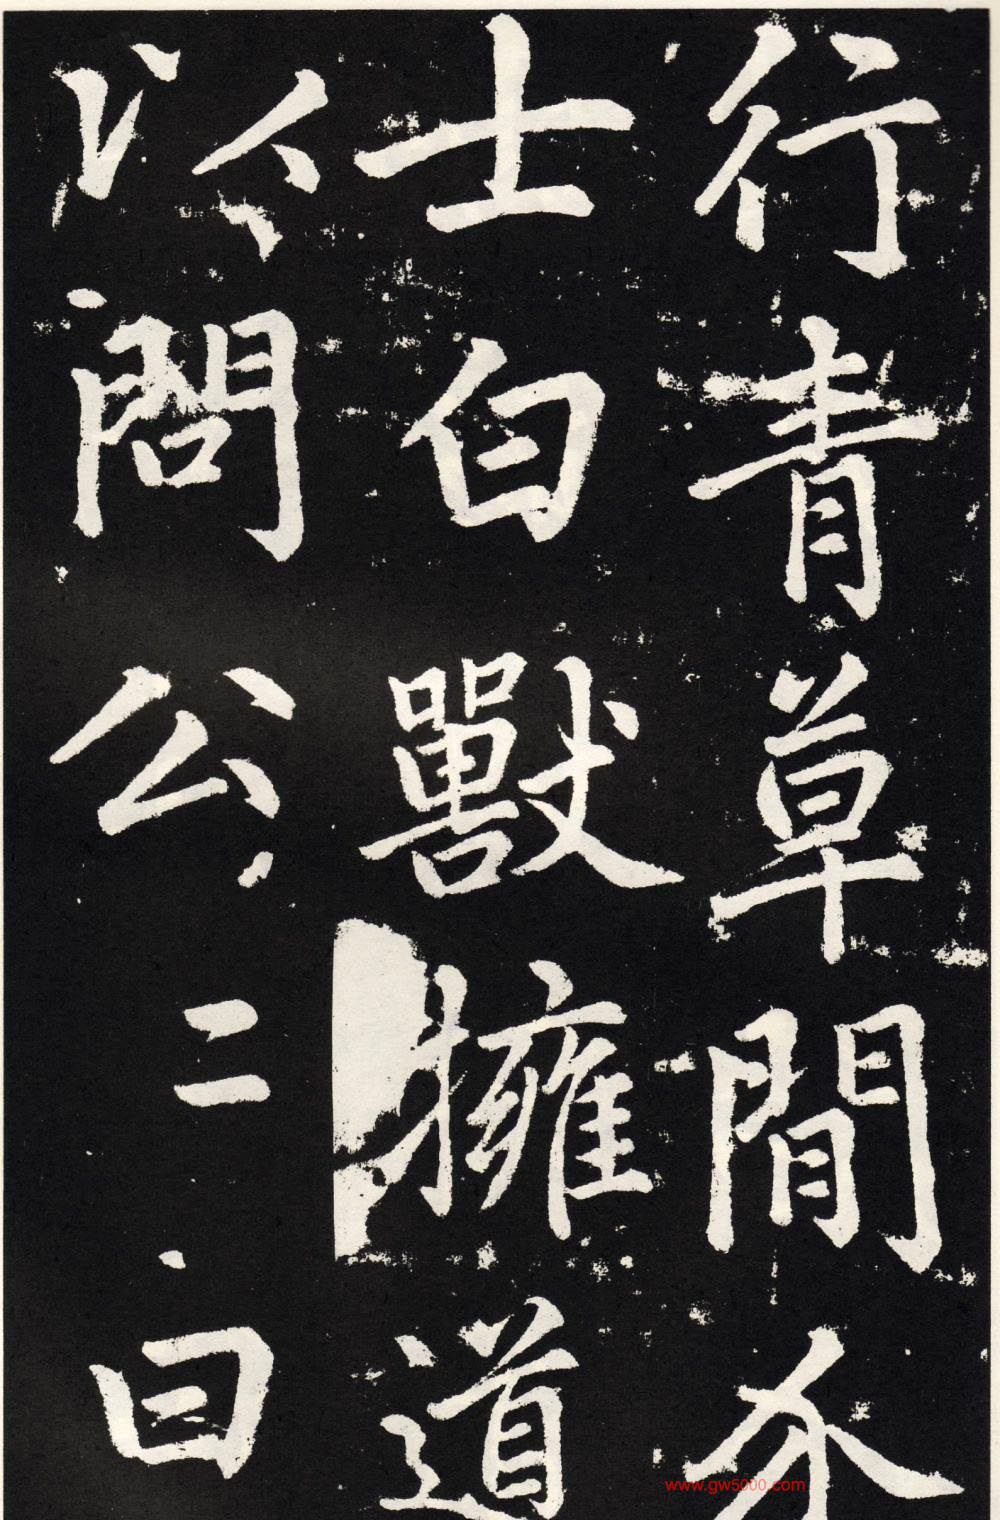 行青草間 
士白獸擁道
以問公公曰
www.gw5000.com